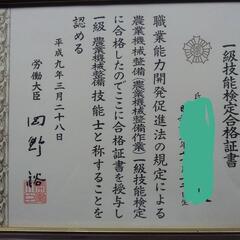 一級技能検定合格証書
職業能力開発促進法の規定による
農業機械整備(農業機械整備作業)一級技能検定
に合格したのでここに合格証書を授与し
一級(農業機械整備)技能士と称することを
認める
平成九年三月二十八日
労働大臣 岡野裕